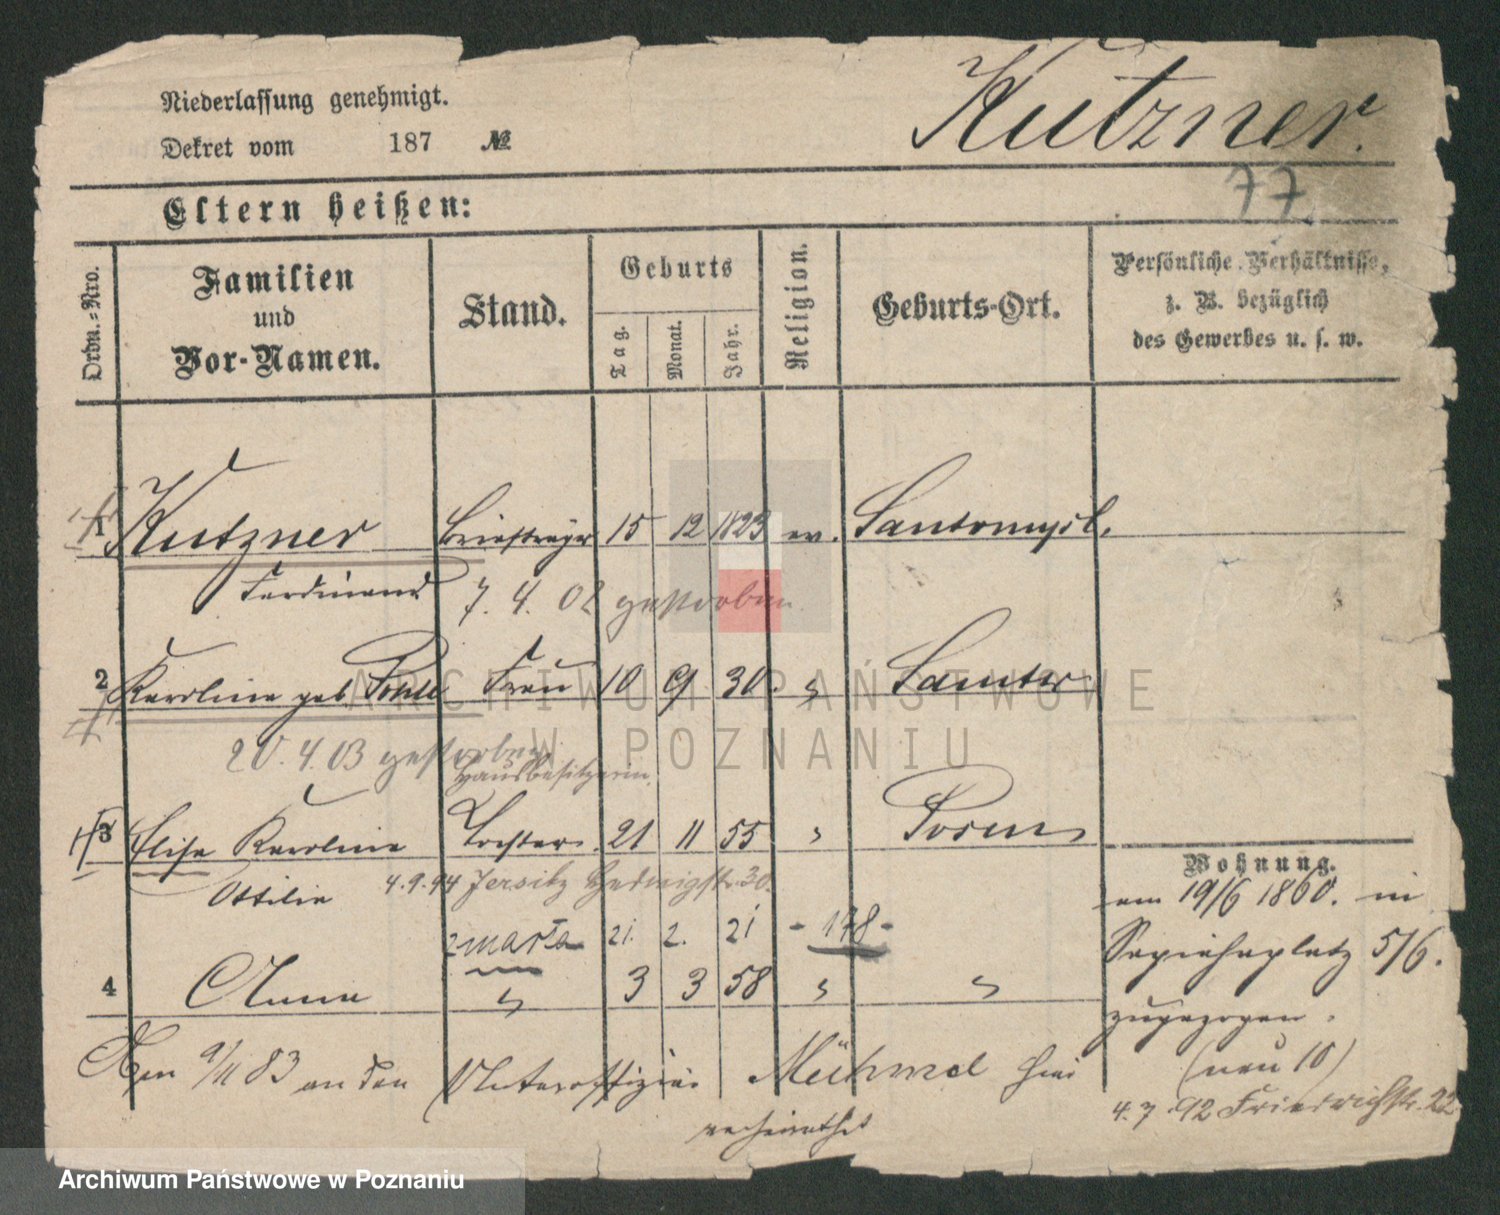 Niederlassung genehmigt.
Kutzner.
Dekret vom 187 №
77.
Eltern heißen:
Ordn.-Nro.
Familien und Vor-Namen.
Stand.
Geburts
Tag.
Monat.
Jahr.
Religion.
Geburts-Ort.
Persönliche Verhältnisse, z. B. bezüglich des Gewerbes u. s. w.
1 Kutzner Briefträger 15 12 1823 ev. Santomysl.
Ferdinand 7. 4. 02 gestorben.
2 Karoline geb. Frau 10 9 30. " Samter
20. 4. 03 gestorben
Hausbesitzerin
3 Elise Karoline Tochter. 21 11 55 " Posen
Ottilie 4.9.94 Jersitz Hedwigstr. 30.
Wohnung.
am 19/6 1860. in
zmarła 21. 2. 21 - 178 -
Sapiehaplatz 5/6.
4 Anna " 3 3 58 " "
zugezogen.
Am 9/11 83 an den Unteroffizier hier
(neu 10)
verheirathet
4.7.92 Friedrichstr. 22
ARCHIWUM PAŃSTWOWE
W POZNANIU
Archiwum Państwowe w Poznaniu